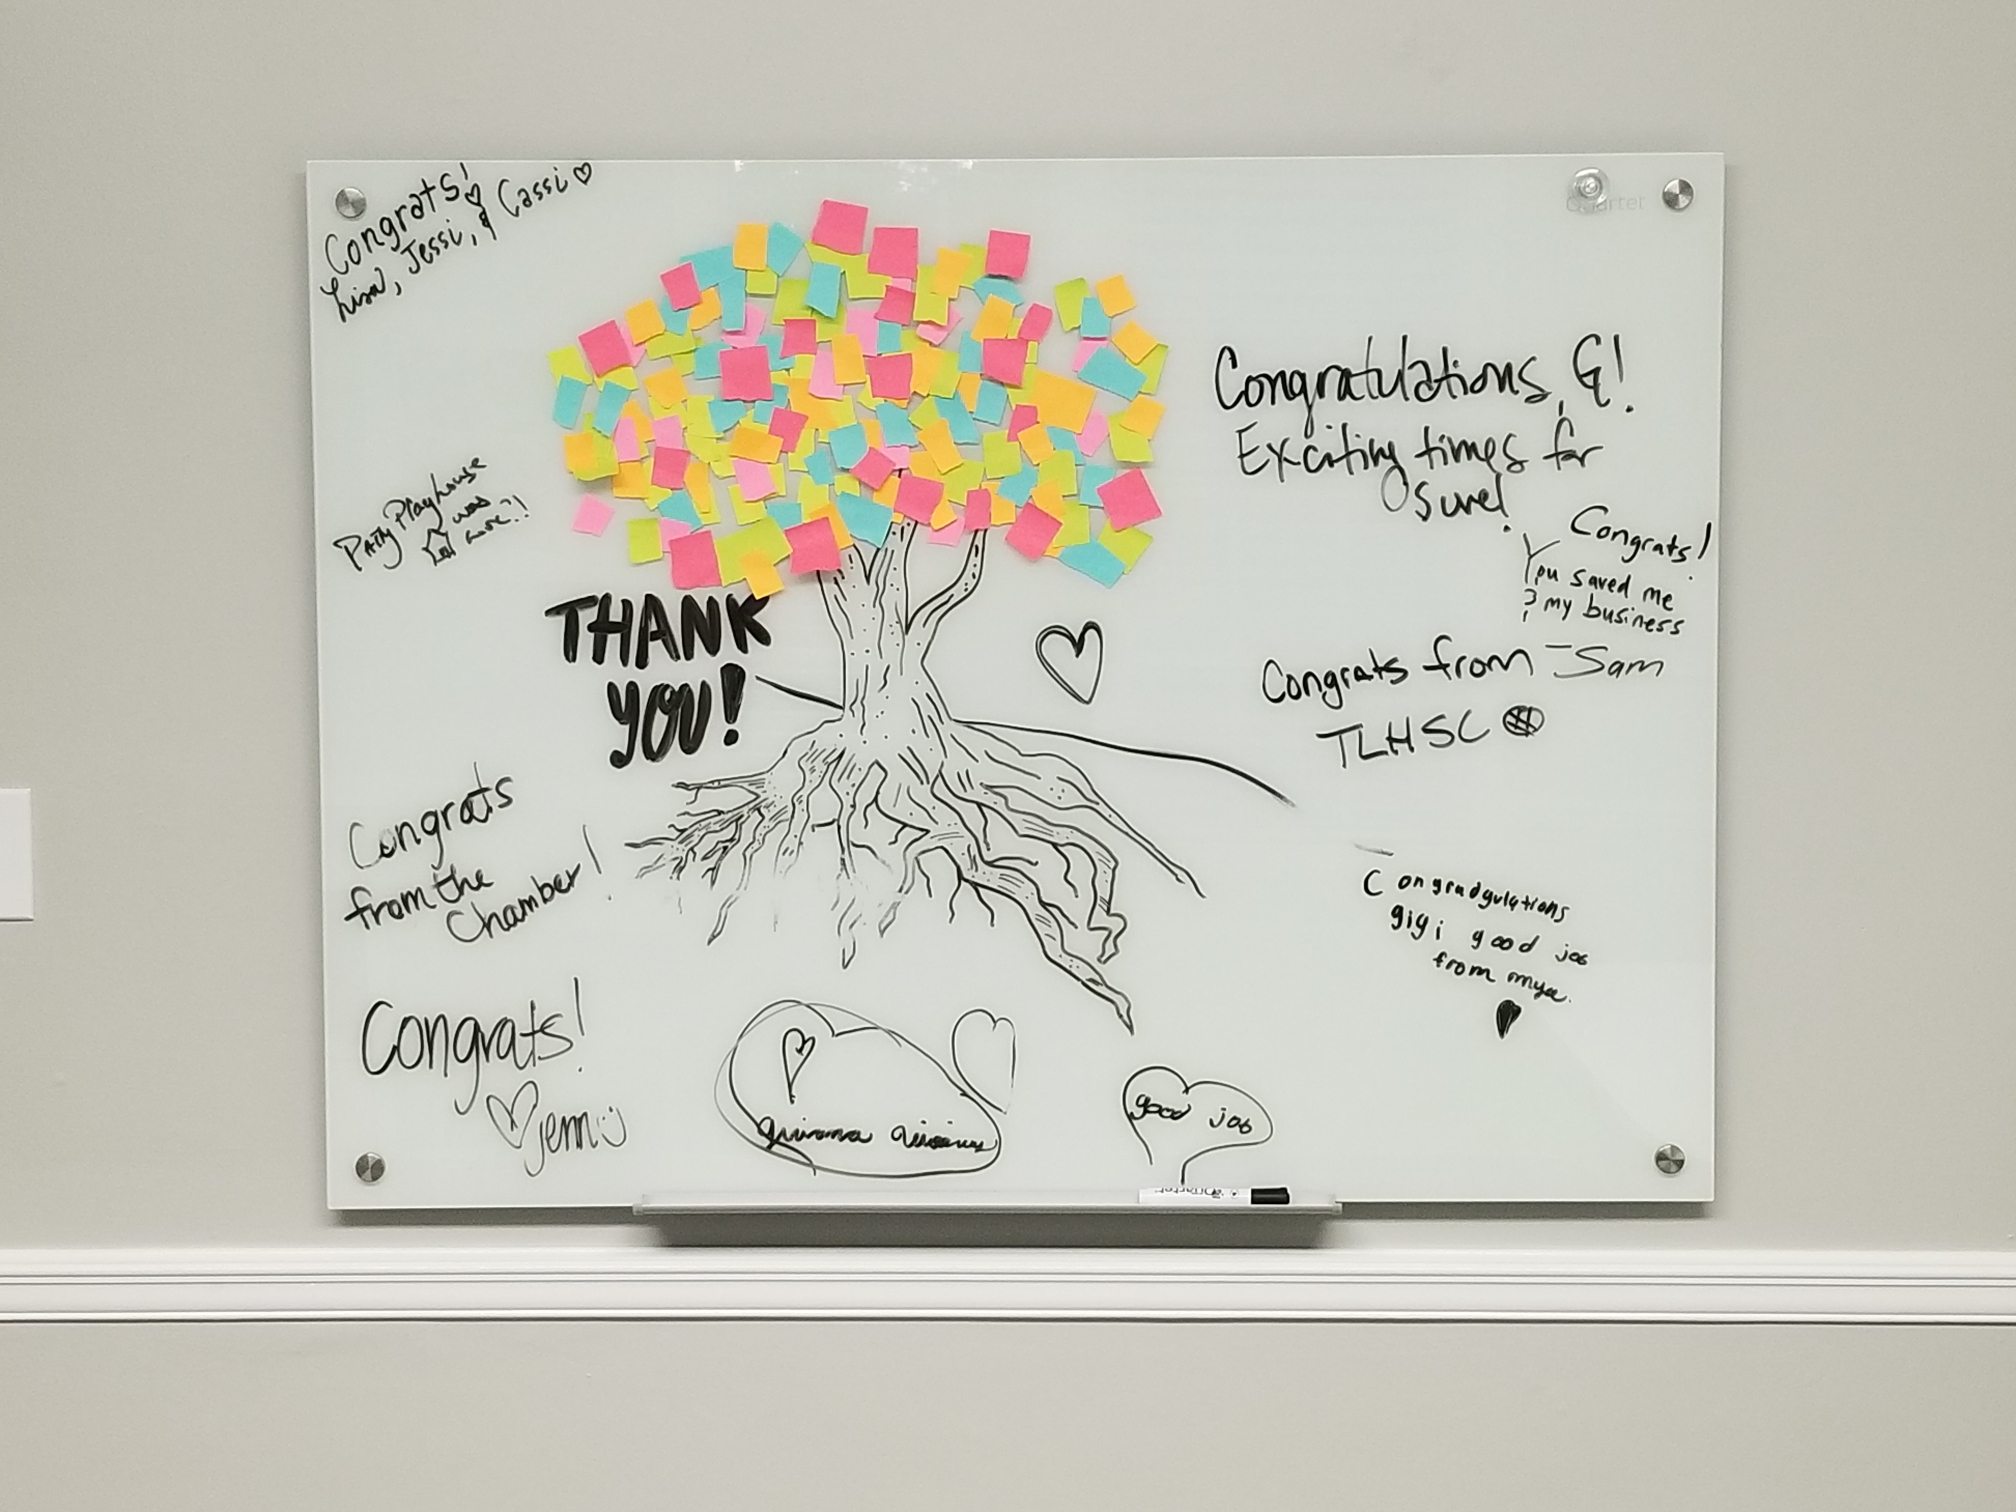 Congrats!
Lisa, Jessi, & Cassi
Quartet
Congratulations, G!
Exciting times for
sure!
Patty Playhouse
was
here!!
Congrats!
You saved me
& my business
- Sam
THANK
YOU!
Congrats from
TLHSC
Congrats
from the
Chamber!
Congradgulations
gigi good job
from mya.
Congrats!
Jenn
good job
Quartet